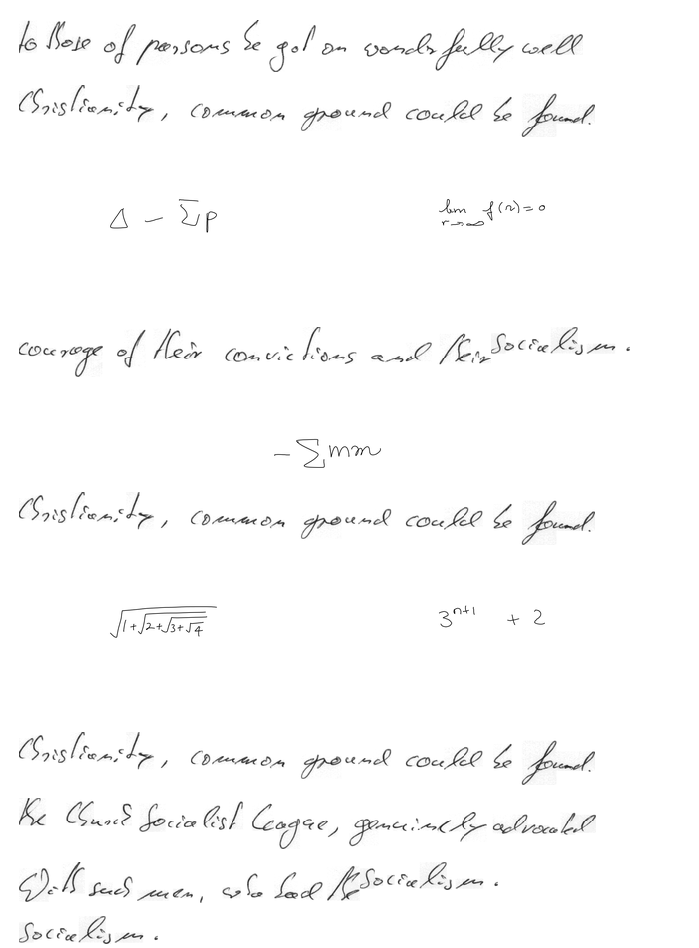 to those of persons he got on wonderfully well
Christianity, common ground could be found.
Δ − ∑p    lim r→∞ f(r)=0
courage of their convictions and their Socialism.
− ∑mm
Christianity, common ground could be found.
√(1+√(2+√(3+√4)))    3^{n+1} + 2
Christianity, common ground could be found.
the Church Socialist League, genuinely advocated
With such men, who had the Socialism.
Socialism.